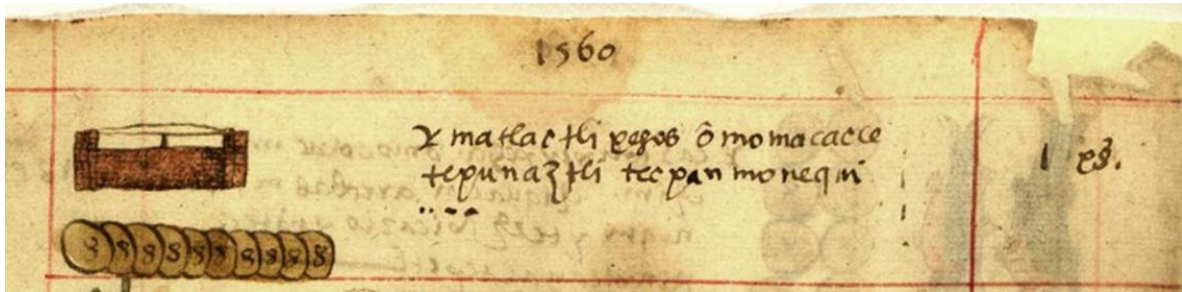 1560
Y matlactli pesos ômomacac ce
tepunaztli tecpan monequi
1 ps.
8 8 8 8 8 8 8 8 8 8